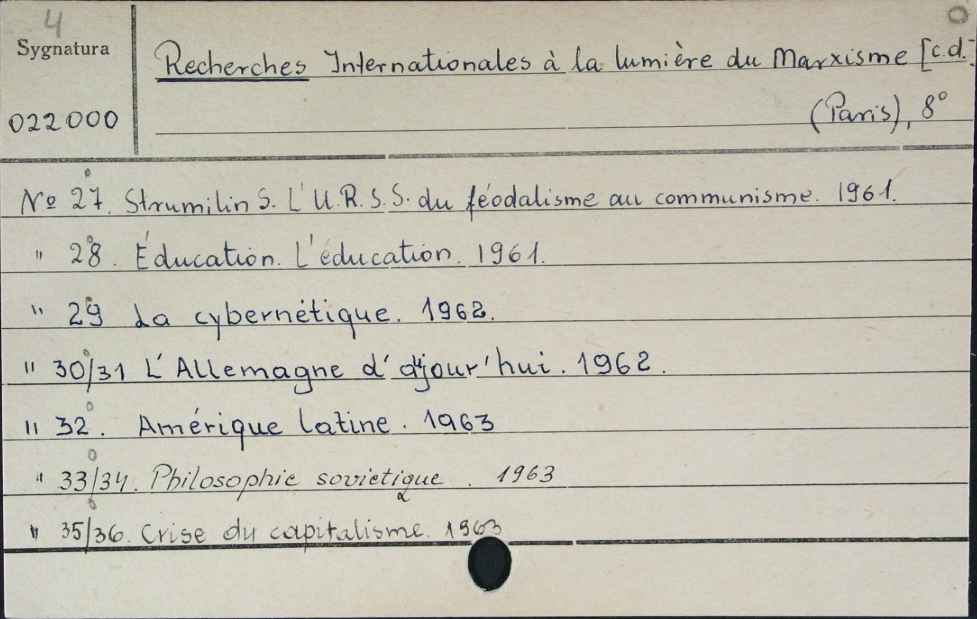 4
Sygnatura
022000
Recherches Internationales à la lumière du Marxisme [c.d.]
(Paris), 8°
№ 27. Strumilin S. L'U.R.S.S. du féodalisme au communisme. 1961.
" 28. Éducation. L'éducation. 1961.
" 29 La cybernétique. 1962.
" 30/31 L'Allemagne d'ajour'hui. 1962.
" 32. Amérique latine. 1963
" 33/34. Philosophie sovietique. 1963
" 35/36. Crise du capitalisme. 1963